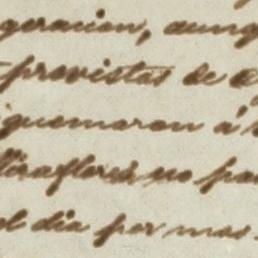 geracion, aunq
provistas de
quemaron á
Miraflores no pa
el dia por mas